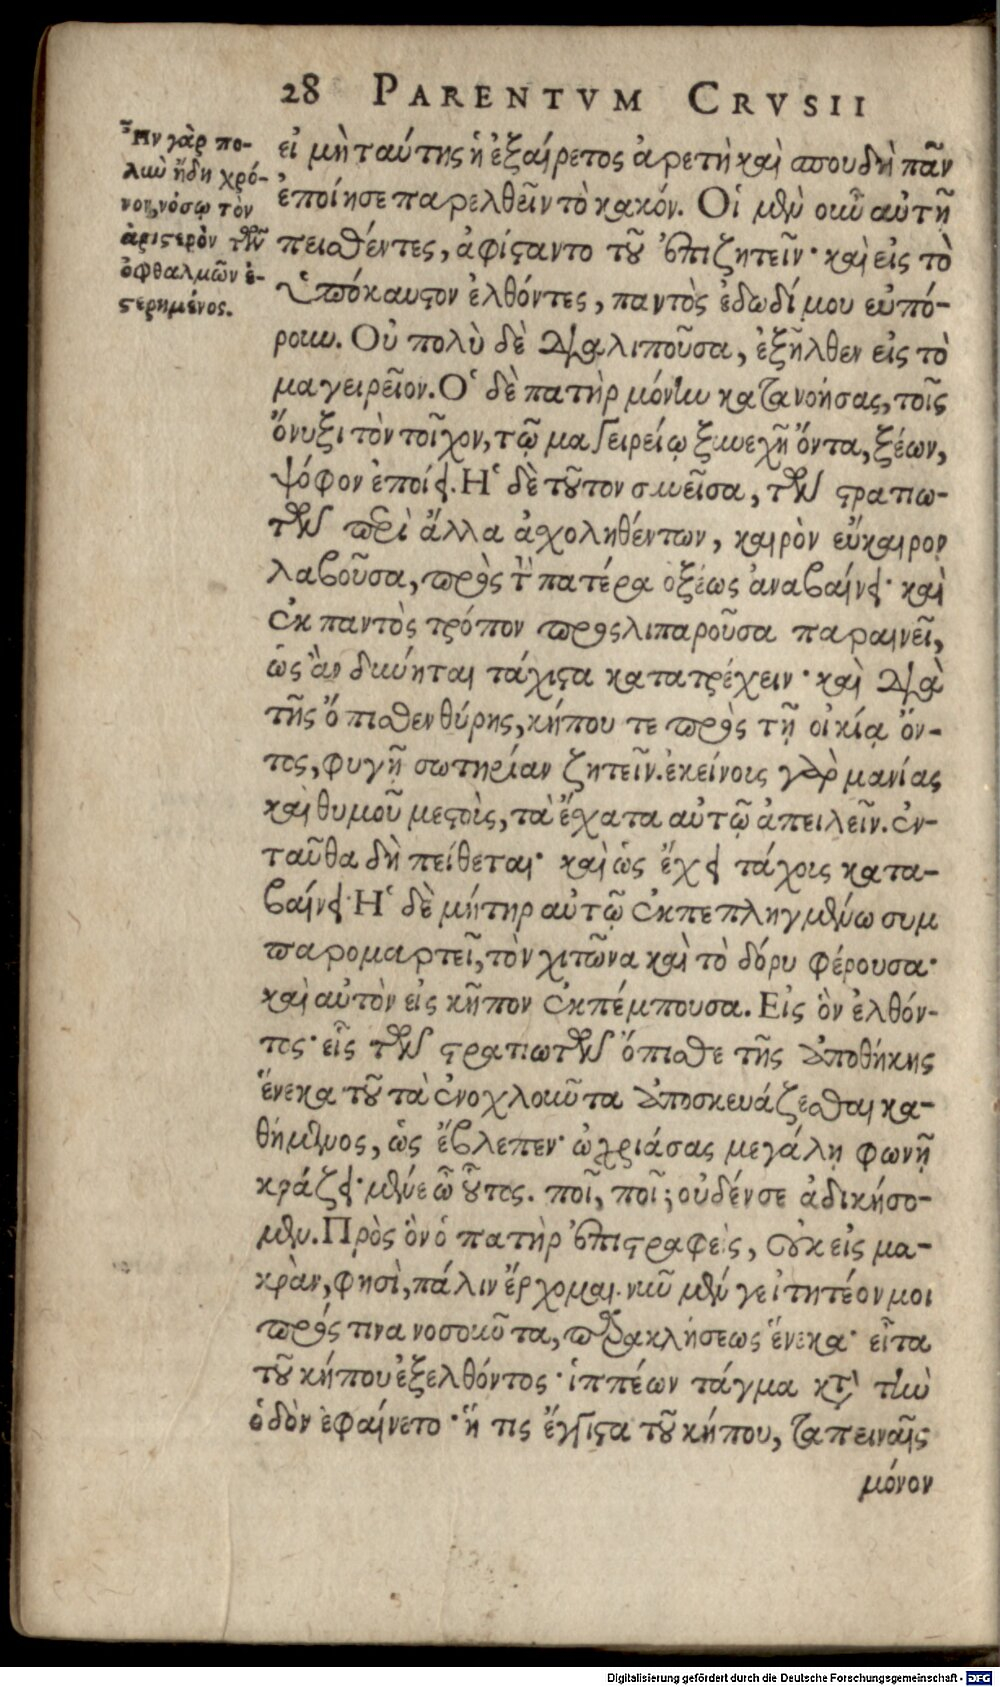 28 PARENTVM CRVSII
Ἦν γὰρ πο-
λὺν ἤδη χρό-
νον, νόσῳ τὸν
ἀριστερὸν τῶν
ὀφθαλμῶν ἐ-
στερημένος.
εἰ μὴ ταύτης ἡ ἐξαίρετος ἀρετὴ καὶ σπουδὴ πᾶν
ἐποίησε παρελθεῖν τὸ κακόν. Οἱ μὲν οὖν αὐτῇ
πεισθέντες, ἀφίσαντο τοῦ ἐπιζητεῖν· καὶ εἰς τὸ
ὑπόκαυστον ἐλθόντες, παντὸς ἐδωδίμου εὐπό-
ρουν. Οὐ πολὺ δὲ διαλιποῦσα, ἐξῆλθεν εἰς τὸ
μαγειρεῖον. Ὁ δὲ πατὴρ μόνην κατανοήσας, τοῖς
ὄνυξι τὸν τοῖχον, τῷ μαγειρείῳ ξυνεχῆ ὄντα, ξέων,
ψόφον ἐποίει. Ἡ δὲ τοῦτον συνεῖσα, τῶν στρατιω-
τῶν περὶ ἄλλα ἀσχοληθέντων, καιρὸν εὔκαιρον
λαβοῦσα, πρὸς τὸν πατέρα ὀξέως ἀναβαίνει· καὶ
ἐκ παντὸς τρόπον προσλιπαροῦσα παραινεῖ,
ὡς ἂν δύνηται τάχιστα κατατρέχειν· καὶ διὰ
τῆς ὄπισθεν θύρης, κήπου τε πρὸς τῇ οἰκίᾳ ὄν-
τος, φυγῇ σωτηρίαν ζητεῖν. ἐκείνοις γὰρ μανίας
καὶ θυμοῦ μεστοῖς, τὰ ἔσχατα αὐτῷ ἀπειλεῖν. ἐν-
ταῦθα δὴ πείθεται· καὶ ὡς ἔχει τάχους κατα-
βαίνει· Ἡ δὲ μήτηρ αὐτῷ ἐκπεπληγμένῳ συμ
παρομαρτεῖ, τὸν χιτῶνα καὶ τὸ δόρυ φέρουσα·
καὶ αὐτὸν εἰς κῆπον ἐκπέμπουσα. Εἰς ὃν ἐλθόν-
τος· εἷς τῶν στρατιωτῶν ὄπισθε τῆς ἀποθήκης
ἕνεκα τοῦ τὰ ἐνοχλοῦντα ἀποσκευάζεσθαι κα-
θήμενος, ὡς ἔβλεπεν· ὠχριάσας μεγάλῃ φωνῇ
κράζει· μένε ὦ οὗτος. ποῖ, ποῖ; οὐδέν σε ἀδικήσο-
μεν. Πρὸς ὃν ὁ πατὴρ ἐπιστραφεὶς, οὐκ εἰς μα-
κρὰν, φησὶ, πάλιν ἔρχομαι. νῦν μέν γε ἰτητέον μοι
πρός τινα νοσοῦντα, παρακλήσεως ἕνεκα· εἶτα
τοῦ κήπου ἐξελθόντος· ἱππέων τάγμα κατὰ τὴν
ὁδὸν ἐφαίνετο· ἥ τις ἔγγιστα τοῦ κήπου, ταπειναῖς
μόνον
Digitalisierung gefördert durch die Deutsche Forschungsgemeinschaft - DFG